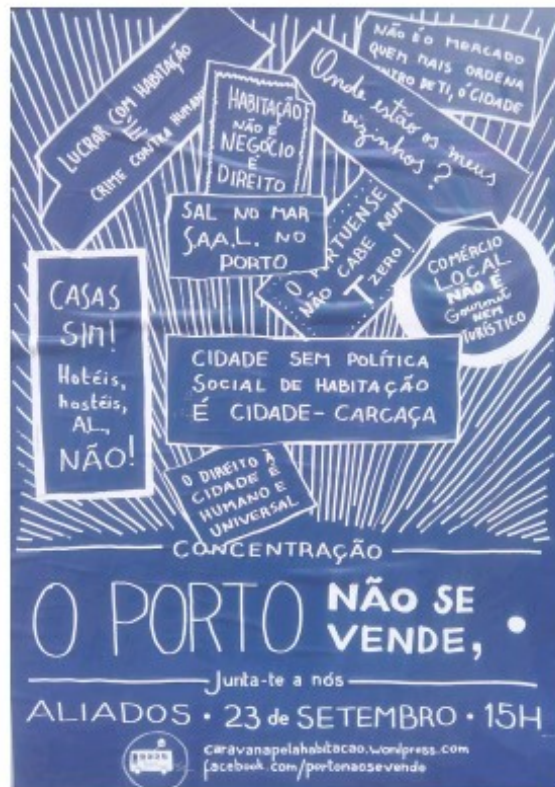 LUCRAR COM HABITAÇÃO
É
CRIME CONTRA HUMANI
HABITAÇÃO
NÃO É
NEGÓCIO
É
DIREITO
Onde estão os meus
vizinhos?
NÃO É O MERCADO
QUEM MAIS ORDENA
NTRO DE TI, Ó CIDADE
SAL NO MAR
S.A.A.L. NO
PORTO
O PORTUENSE
NÃO CABE NUM
T ZERO!
COMÉRCIO
LOCAL
NÃO É
Gourmet
NEM
TURÍSTICO
CASAS
SIM!
Hotéis,
hostéis,
AL,
NÃO!
CIDADE SEM POLÍTICA
SOCIAL DE HABITAÇÃO
É CIDADE-CARCAÇA
O DIREITO À
CIDADE É
HUMANO E
UNIVERSAL
CONCENTRAÇÃO
O PORTO NÃO SE
VENDE,
Junta-te a nós
ALIADOS • 23 de SETEMBRO • 15H
caravanapelahabitacao.wordpress.com
facebook.com/portonaosevende